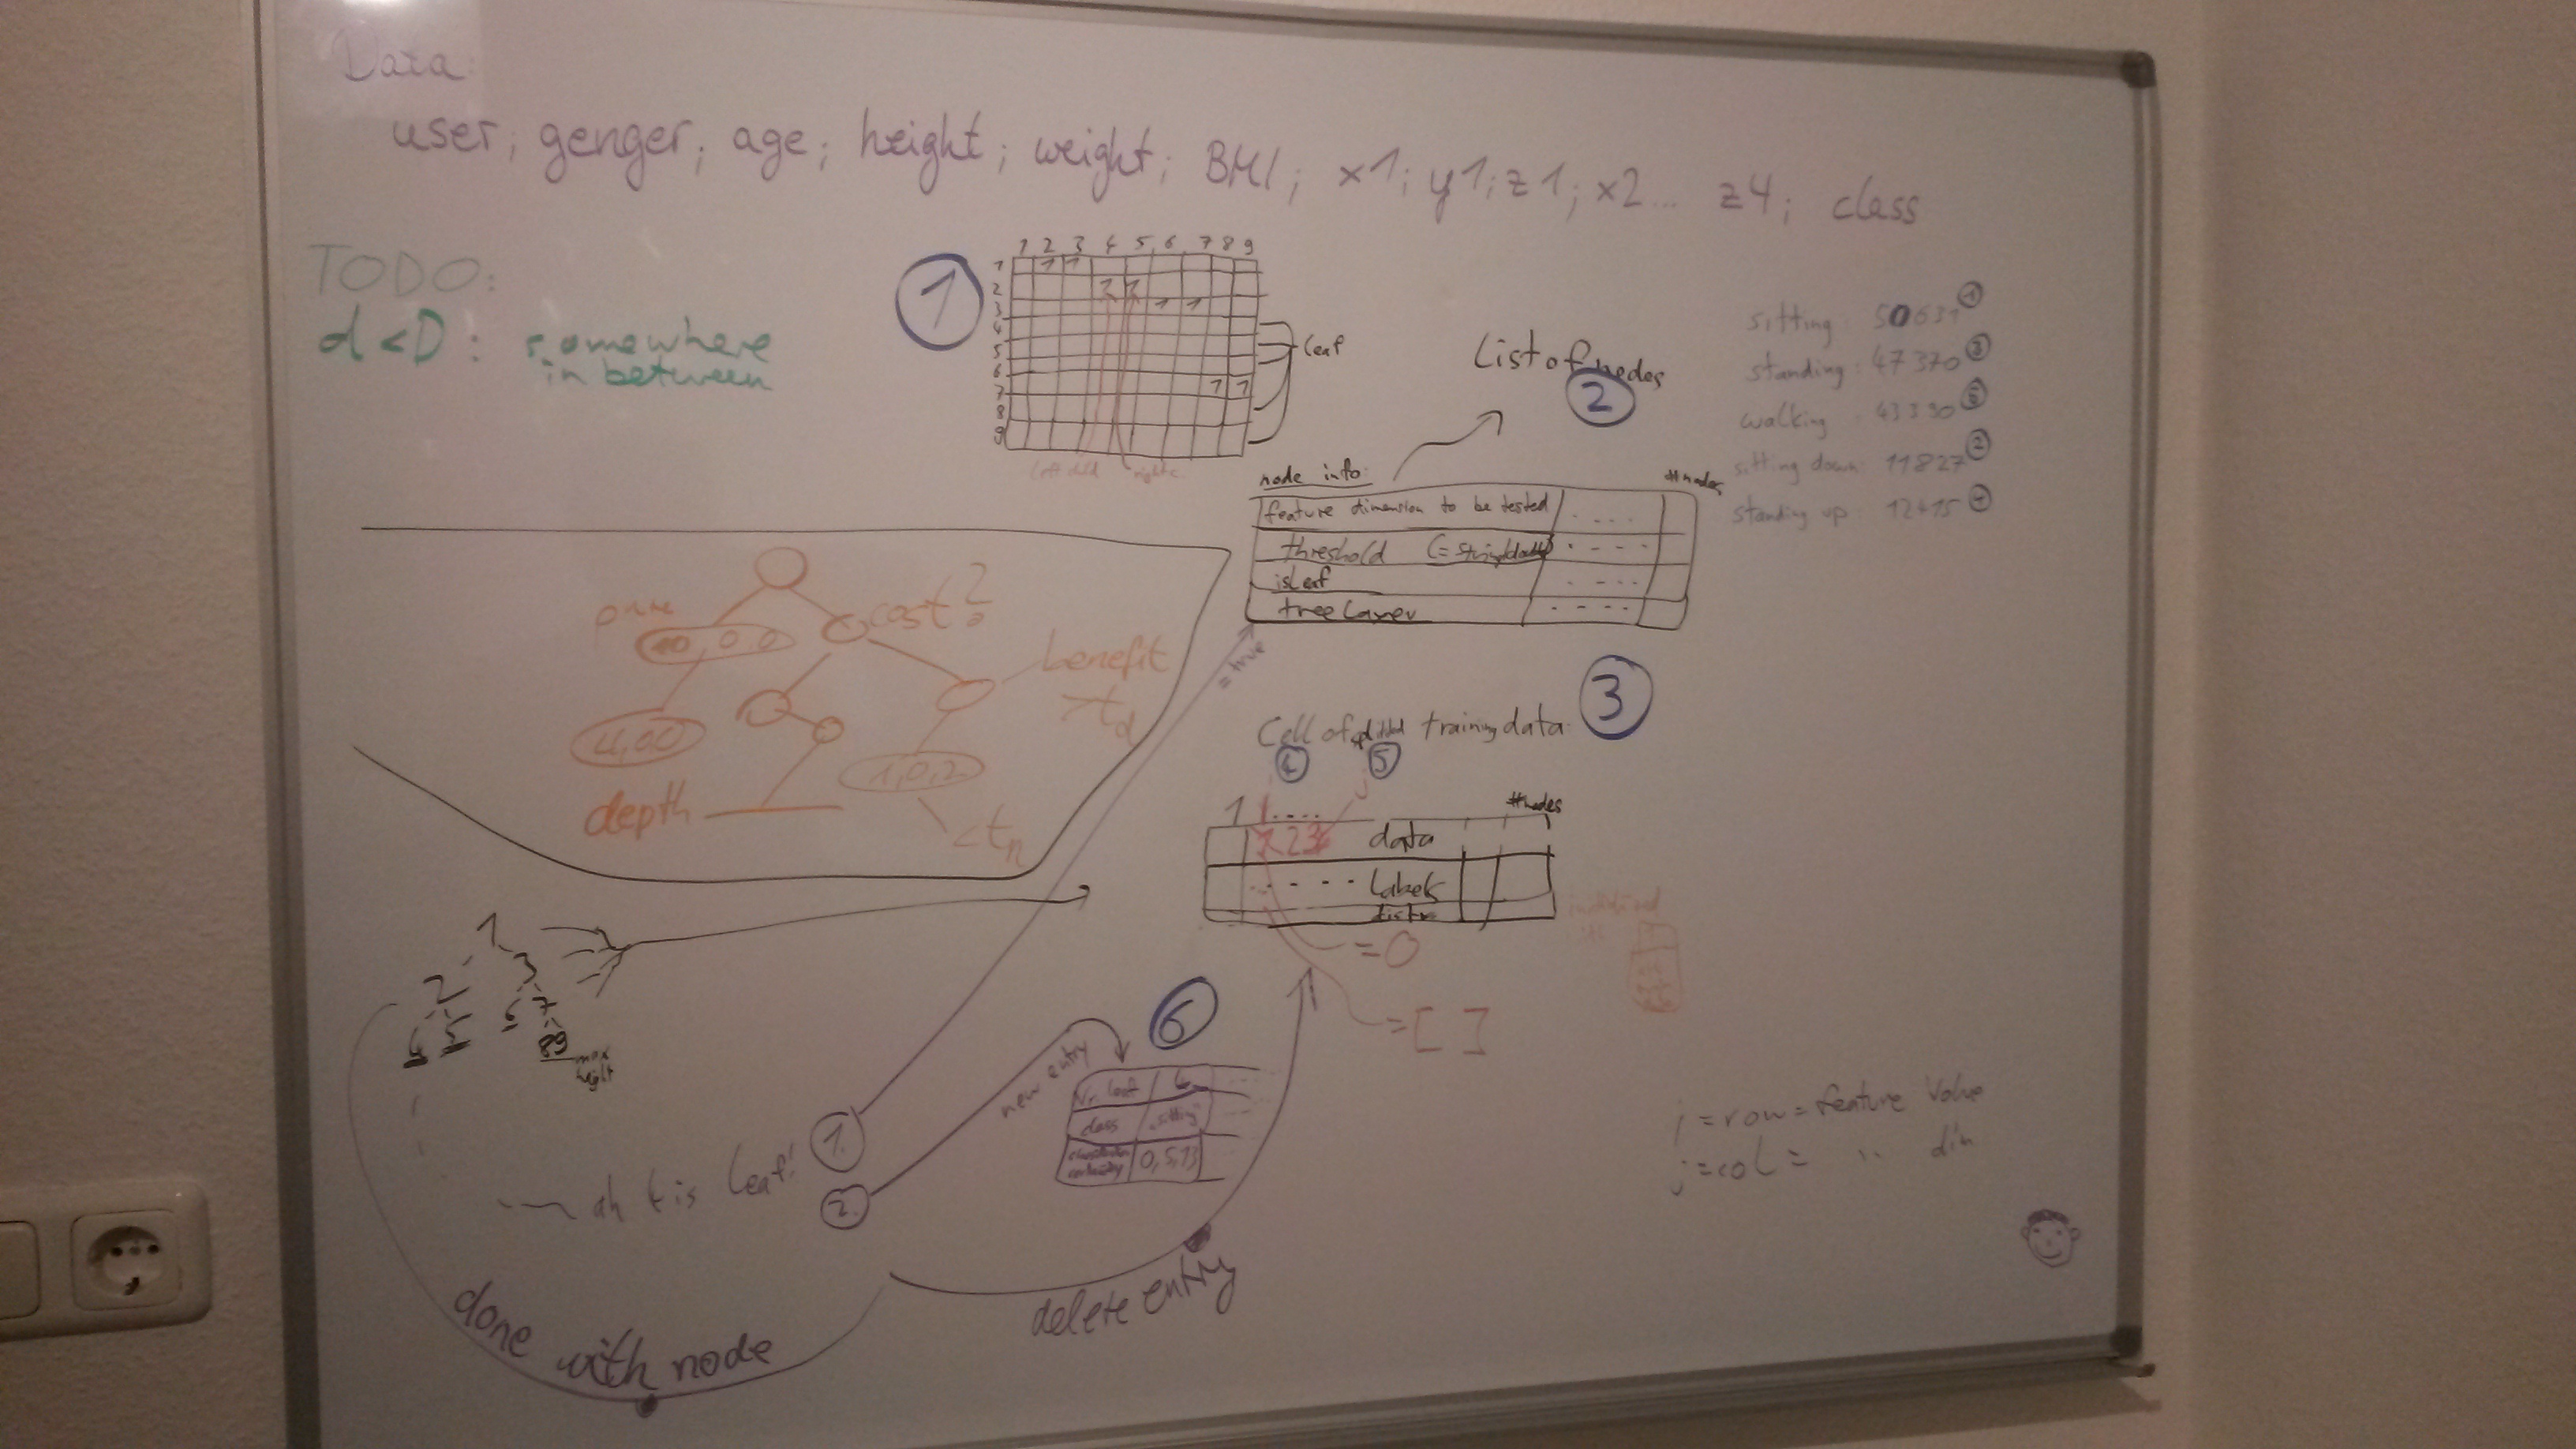 Data:
user; genger; age; height; weight; BMI; x1; y1; z1; x2... z4; class
TODO:
d<D: somewhere
in between
1
1 2 3 4 5 6 7 8 9
1 1 1
2 1 1
3 1 1
4
5
6
7 1 1
8
9
leaf
left child
right c.
List of nodes
2
sitting: 50631 1
standing: 47370 3
walking: 43390 5
sitting down: 11827 2
standing up: 12415 4
node info:
#nodes
feature dimension to be tested ....
threshold ....
isLeaf ....
treeLayer ....
= true
pure
10 0 0
cost?
benefit
>t_d
4,0,0
1,0,2
depth
<t_n
3
Cell of splitted training data:
4 5
j
1 .... #nodes
data
.... labels
distr
= 0
= [ ]
1
2 3
4 5 6 7
8 9
max
height
6
new entry
Nr. leaf 4
class "sitting"
classification
certainty 0,5,13
ah 4 is leaf!
1.
2.
done with node
delete entry
i = row = feature value
j = col = " dim